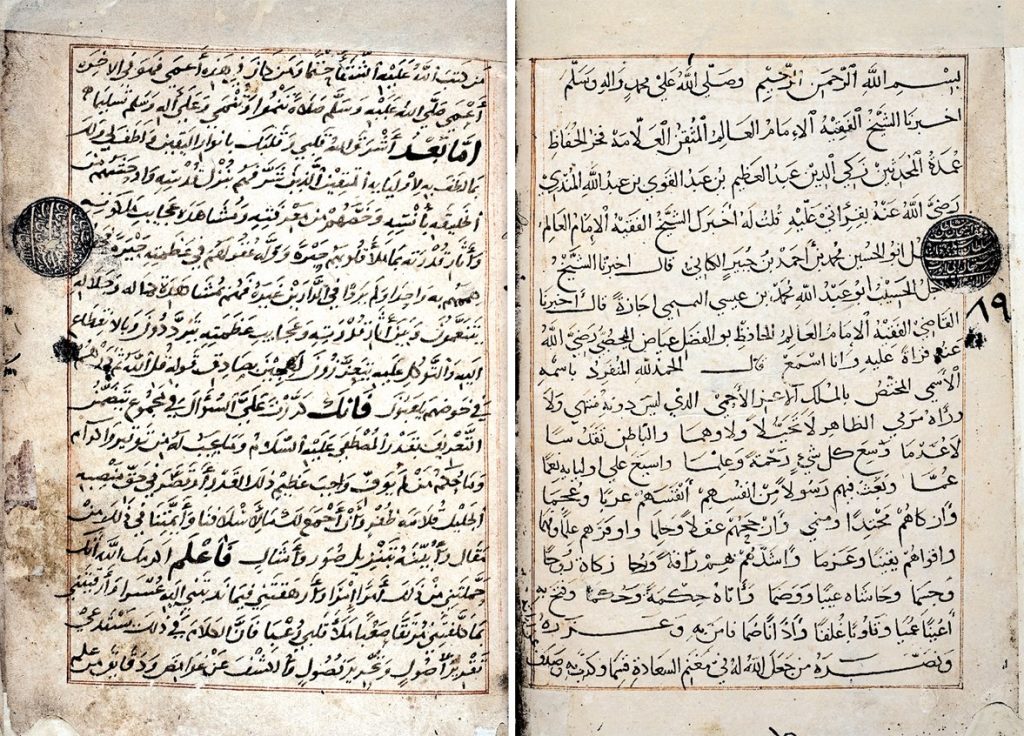 بسم الله الرحمن الرحيم وصلى الله على محمد واله وسلم
اخبرنا الشيخ الفقيه الامام العالم المتقن العلامة فخر الحفاظ
عمدة المحدثين زكي الدين عبد العظيم بن عبد القوي بن عبد الله المنذري
رضي الله عنه بقراتي عليه قلت له اخبرك الشيخ الفقيه الامام العالم
ابو الحسين محمد بن احمد بن جبير الكناني قال اخبرنا الشيخ
الحسيب ابو عبد الله محمد بن عيسى التميمي اجازة قال اخبرنا
٨٩
القاضي الفقيه الامام العالم الحافظ ابو الفضل عياض اليحصبي رضي الله
عنه قراة عليه وانا اسمع قال الحمد لله المنفرد باسمه
الاسمى المختص بالملك الاعز الاحمى الذي ليس دونه منتهى ولا
وراه مرمى الظاهر لا تخيلا ولا وهما والباطن تقدسا
لا عدما وسع كل شيء رحمة وعلما واسبغ على اوليايه نعما
عما وبعث فيهم رسولا من انفسهم انفسهم عربا وعجما
وازكاهم محتدا ومنمى وارجحهم عقلا وحلما واوفرهم علما وفهما
واقواهم يقينا وعزما واشدهم بهم رافة ورحما زكاه روحا
وجسما وحاشاه عيبا ووصما واتاه حكمة وحكما وفتح به
اعينا عميا وقلوبا غلفا واذانا صما فامن به وعزره
ونصره من جعل الله له في مغنم السعادة قسما وكذب به وصدف
من كتب الله عليه الشقا حتما ومن كان في هذه اعمى فهو في الاخرة
اعمى صلى الله عليه وسلم صلاة تنموا وتنمى وعلى اله وسلم تسليما
اما بعد اشرق الله قلبي وقلبك بانوار اليقين ولطف لي ولك
بما لطف به لاوليايه المتقين الذين شرفهم بنزل قدسه واوحشهم من
الخليقة بانسه وخصهم من معرفته ومشاهدة عجايب ملكوته
واثار قدرته بما ملا قلوبهم حبرة ووله عقولهم في عظمته حيرة
همهم به واحدا ولم يروا في الدارين غيره فهم بمشاهدة جماله وجلاله
يتنعمون وبين اثار قدرته وعجايب عظمته يترددون وبالانقطاع
اليه والتوكل عليه يتعززون لهجين بصادق قوله قل الله ثم ذرهم
في خوضهم يلعبون فانك كررت علي السؤال في مجموع يتضمن
التعريف بقدر المصطفى عليه السلام وما يجب له من توقير واكرام
وما حكم من لم يوف واجب عظيم ذلك القدر او قصر في حق منصبه
الجليل قلامة ظفر وان اجمع لك ما لاسلافنا وايمتنا في ذلك من
مقال وابينه بتنزيل صور وامثال فاعلم اكرمك الله انك
حملتني من ذلك امرا امرا وارهقتني فيما ندبتني اليه عسرا وارقيتني
بما كلفتني مرتقا صعبا ملا قلبي رعبا فان الكلام في ذلك يستدعي
تقرير اصول وتحرير فصول والكشف عن غوامض ودقايق من علم